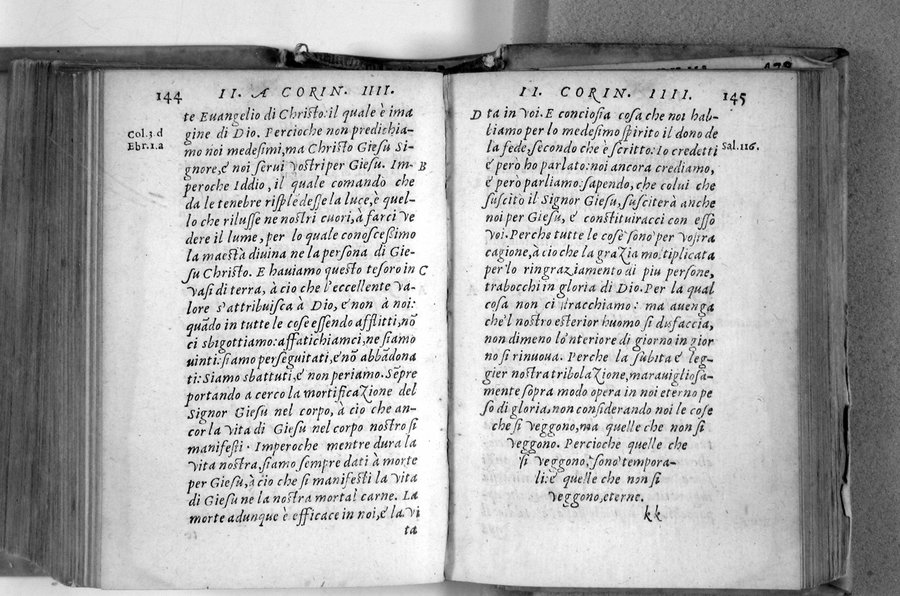 144 II. A CORIN. IIII.
te Euangelio di Christo: il quale è ima
Col.3.d gine di Dio. Percioche non predichia-
Ebr.1.a mo noi medesimi, ma Christo Giesu Si-
gnore, e noi serui vostri per Giesu. Im- B
peroche Iddio, il quale comando che
da le tenebre rispledesse la luce, è quel-
lo che rilusse ne nostri cuori, à farci ve
dere il lume, per lo quale conoscessimo
la maestà diuina ne la persona di Gie-
su Christo. E hauiamo questo tesoro in C
vasi di terra, à cio che l'eccellente va-
lore s'attribuisca à Dio, e non à noi:
quādo in tutte le cose essendo afflitti, nō
ci sbigottiamo: affatichiamci, ne siamo
uinti: siamo perseguitati, e nō abbādona
ti: Siamo sbattuti, e non periamo. Sēpre
portando a cerco la mortificazione del
Signor Giesu nel corpo, à cio che an-
cor la vita di Giesu nel corpo nostro si
manifesti. Imperoche mentre dura la
vita nostra, siamo sempre dati à morte
per Giesu, à cio che si manifesti la vita
di Giesu ne la nostra mortal carne. La
morte adunque è efficace in noi, e la vi
ta
II. CORIN. IIII. 145
D ta in voi. E conciosia cosa che noi hab-
biamo per lo medesimo spirito il dono de
la fede, secondo che è scritto: Io credetti Sal.116.
e però ho parlato: noi ancora crediamo,
e però parliamo: sapendo, che colui che
suscitò il Signor Giesu, susciterà anche
noi per Giesu, e constituiracci con esso
voi. Perche tutte le cose sono per vostra
cagione, à cio che la grazia moltiplicata
per lo ringraziamento di piu persone,
trabocchi in gloria di Dio. Per la qual
cosa non ci stracchiamo: ma auenga
che'l nostro esterior huomo si disfaccia,
non dimeno lo'nteriore di giorno in gior
no si rinuoua. Perche la subita e leg-
gier nostra tribolazione, marauigliosa-
mente sopra modo opera in noi eterno pe
so di gloria, non considerando noi le cose
che si veggono, ma quelle che non si
veggono. Percioche quelle che
si veggono, sono tempora-
li: e quelle che non si
veggono, eterne.
kk